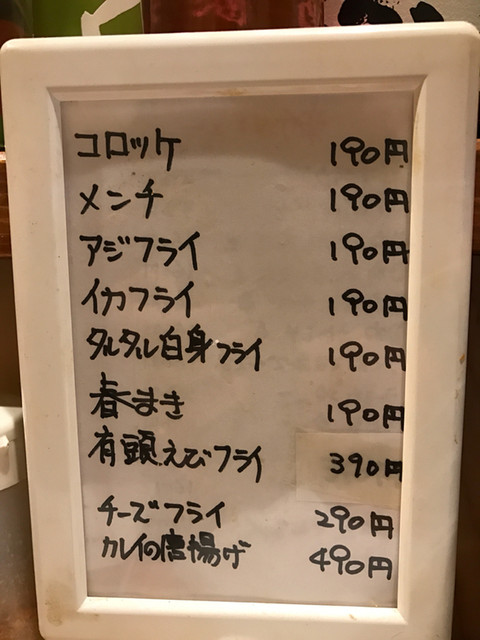 コロッケ 190円
メンチ 190円
アジフライ 190円
イカフライ 190円
タルタル白身フライ 190円
春まき 190円
有頭えびフライ 390円
チーズフライ 290円
カレイの唐揚げ 490円